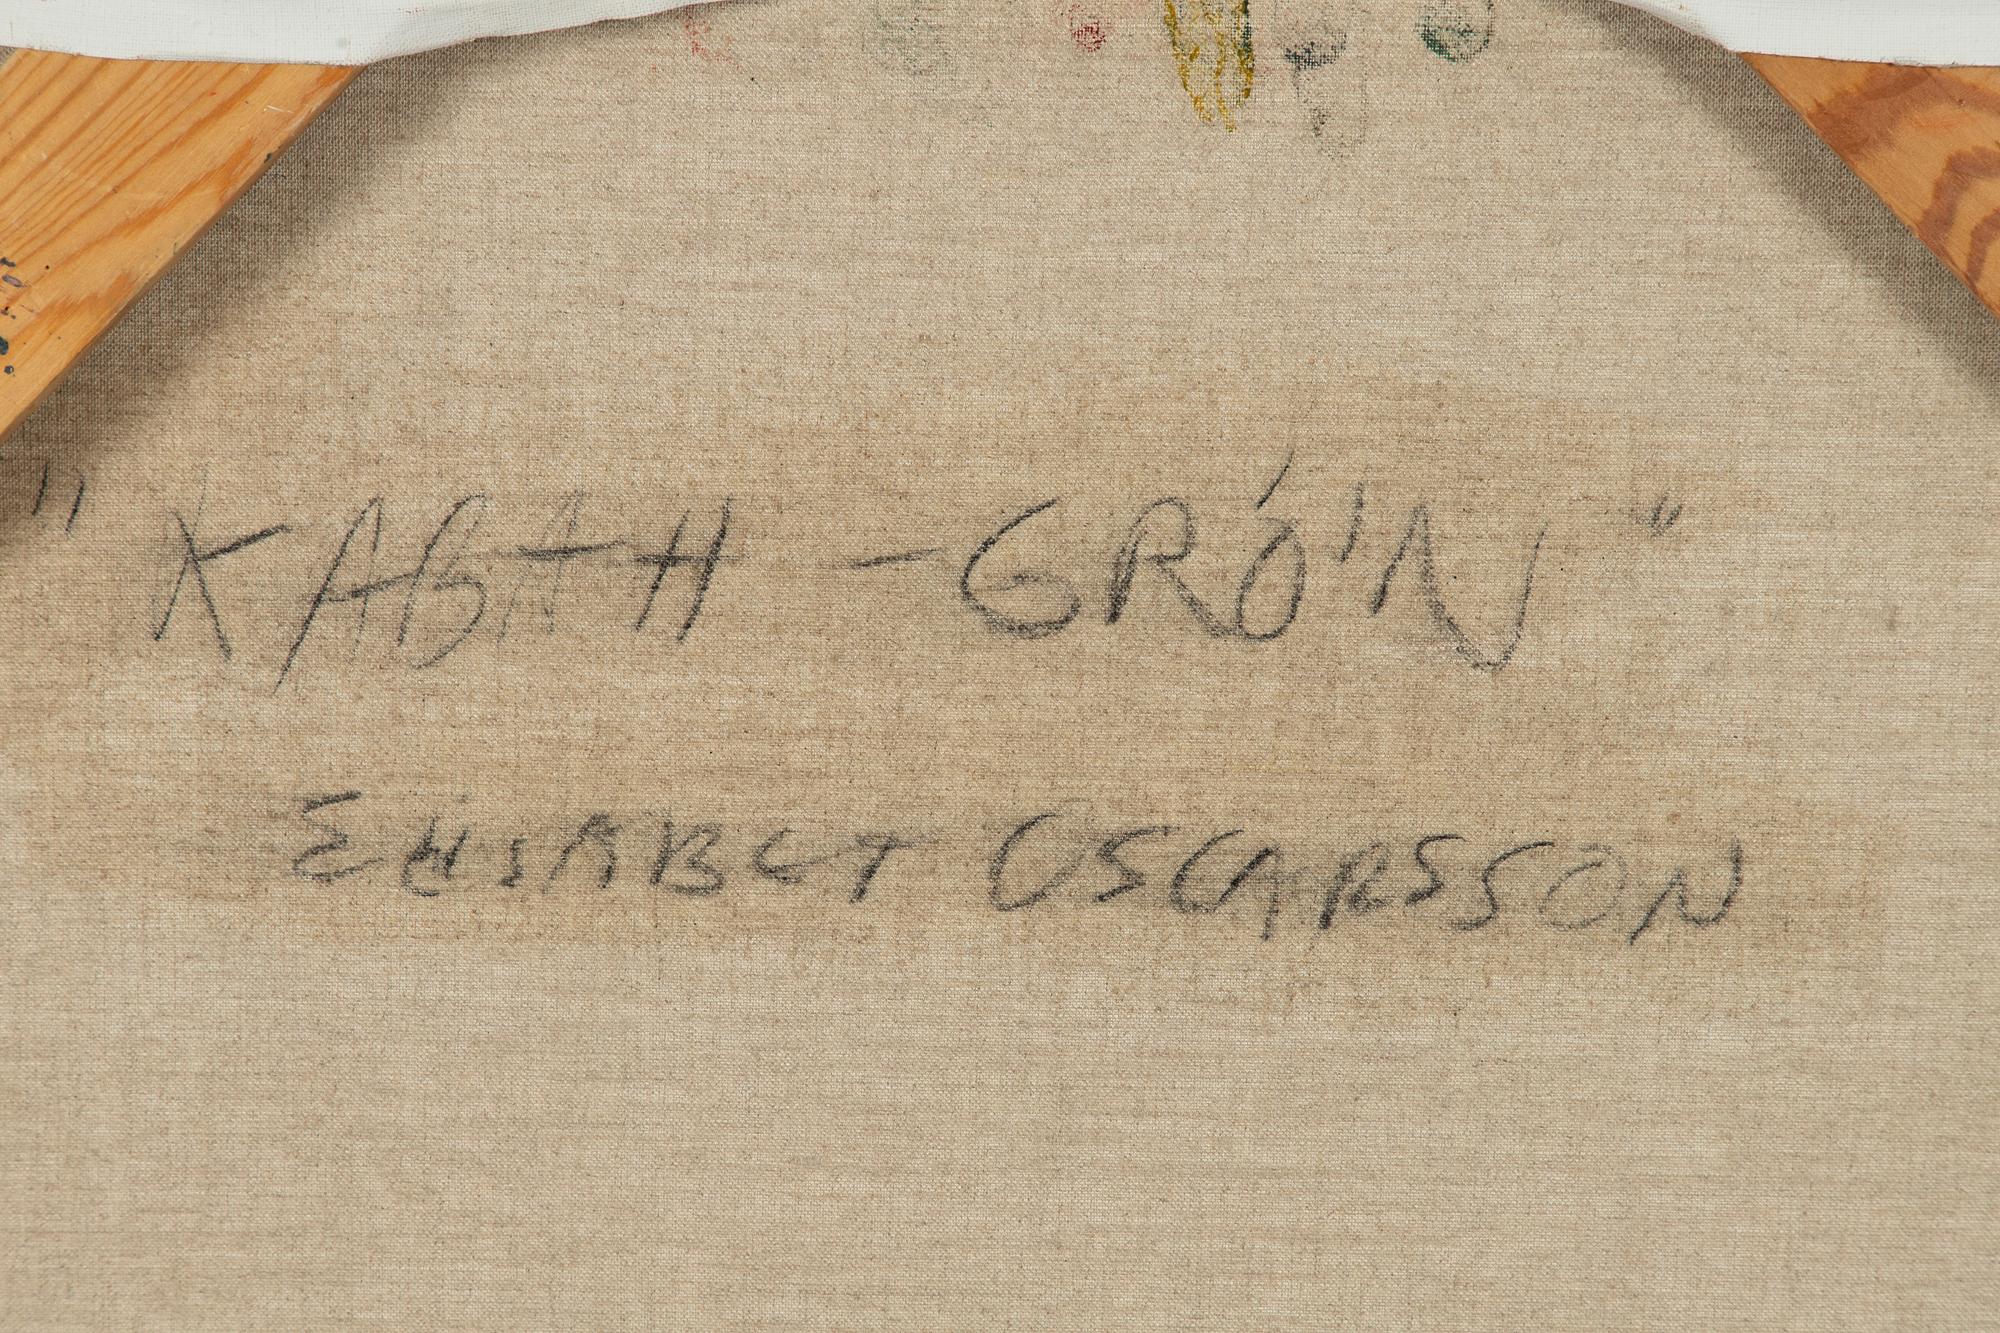 "KABAH - GRÖN"
ELISABET OSCARSSON